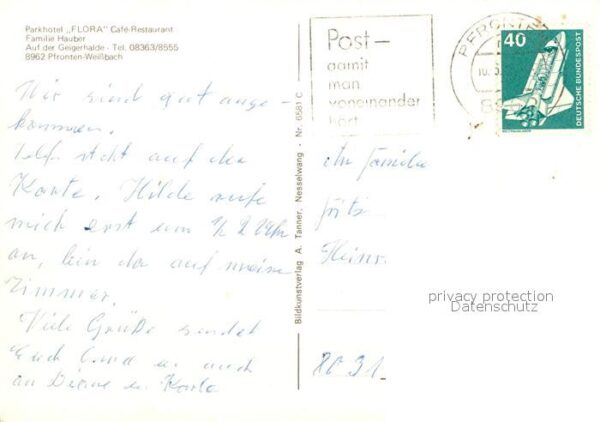 Parkhotel „FLORA" Café-Restaurant
Familie Hauber
Auf der Geigerhalde - Tel. 08363/8555
8962 Pfronten-Weißbach
Wir sind gut ange-
kommen.
Telf. steht auf der
Karte. Hilde rufe
mich erst um 1/2 2 Uhr
an, bin da auf meine
Zimmer.
Viele Grüße sendet
Euch u. auch
an u.
Bildkunstverlag A. Tanner, Nesselwang - Nr. 6581 C
Post-
damit
man
voneinander
hört
PFRONTEN
10.
89
40
DEUTSCHE BUNDESPOST
An Familie
Heinr.
8031
privacy protection
Datenschutz